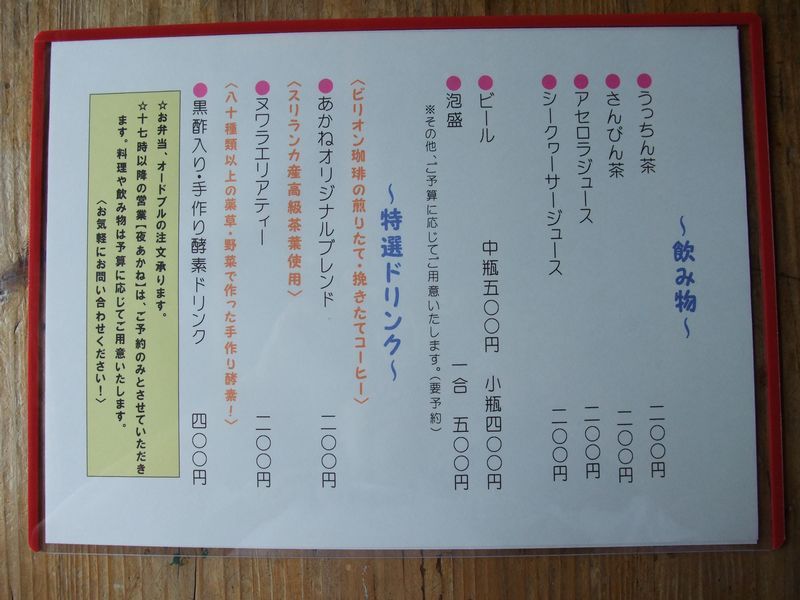 ～飲み物～
●うっちん茶 二〇〇円
●さんぴん茶 二〇〇円
●アセロラジュース 二〇〇円
●シークヮーサージュース 二〇〇円
●ビール 中瓶五〇〇円 小瓶四〇〇円
●泡盛 一合 五〇〇円
※その他、ご予算に応じてご用意いたします。(要予約)
～特選ドリンク～
〈ビリオン珈琲の煎りたて・挽きたてコーヒー〉
●あかねオリジナルブレンド 二〇〇円
〈スリランカ産高級茶葉使用〉
●ヌワラエリアティー 二〇〇円
〈八十種類以上の薬草・野菜で作った手作り酵素！〉
●黒酢入り・手作り酵素ドリンク 四〇〇円
☆お弁当、オードブルの注文承ります。
☆十七時以降の営業【夜あかね】は、ご予約のみとさせていただき
ます。料理や飲み物は予算に応じてご用意いたします。
〈お気軽にお問い合わせください！〉